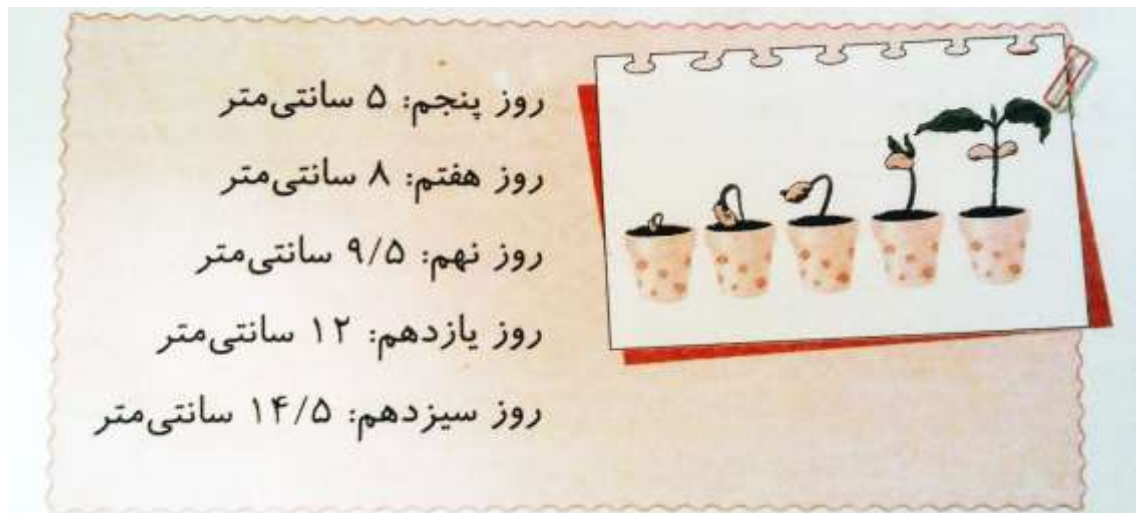 روز پنجم: ۵ سانتی‌متر
روز هفتم: ۸ سانتی‌متر
روز نهم: ۹/۵ سانتی‌متر
روز یازدهم: ۱۲ سانتی‌متر
روز سیزدهم: ۱۴/۵ سانتی‌متر